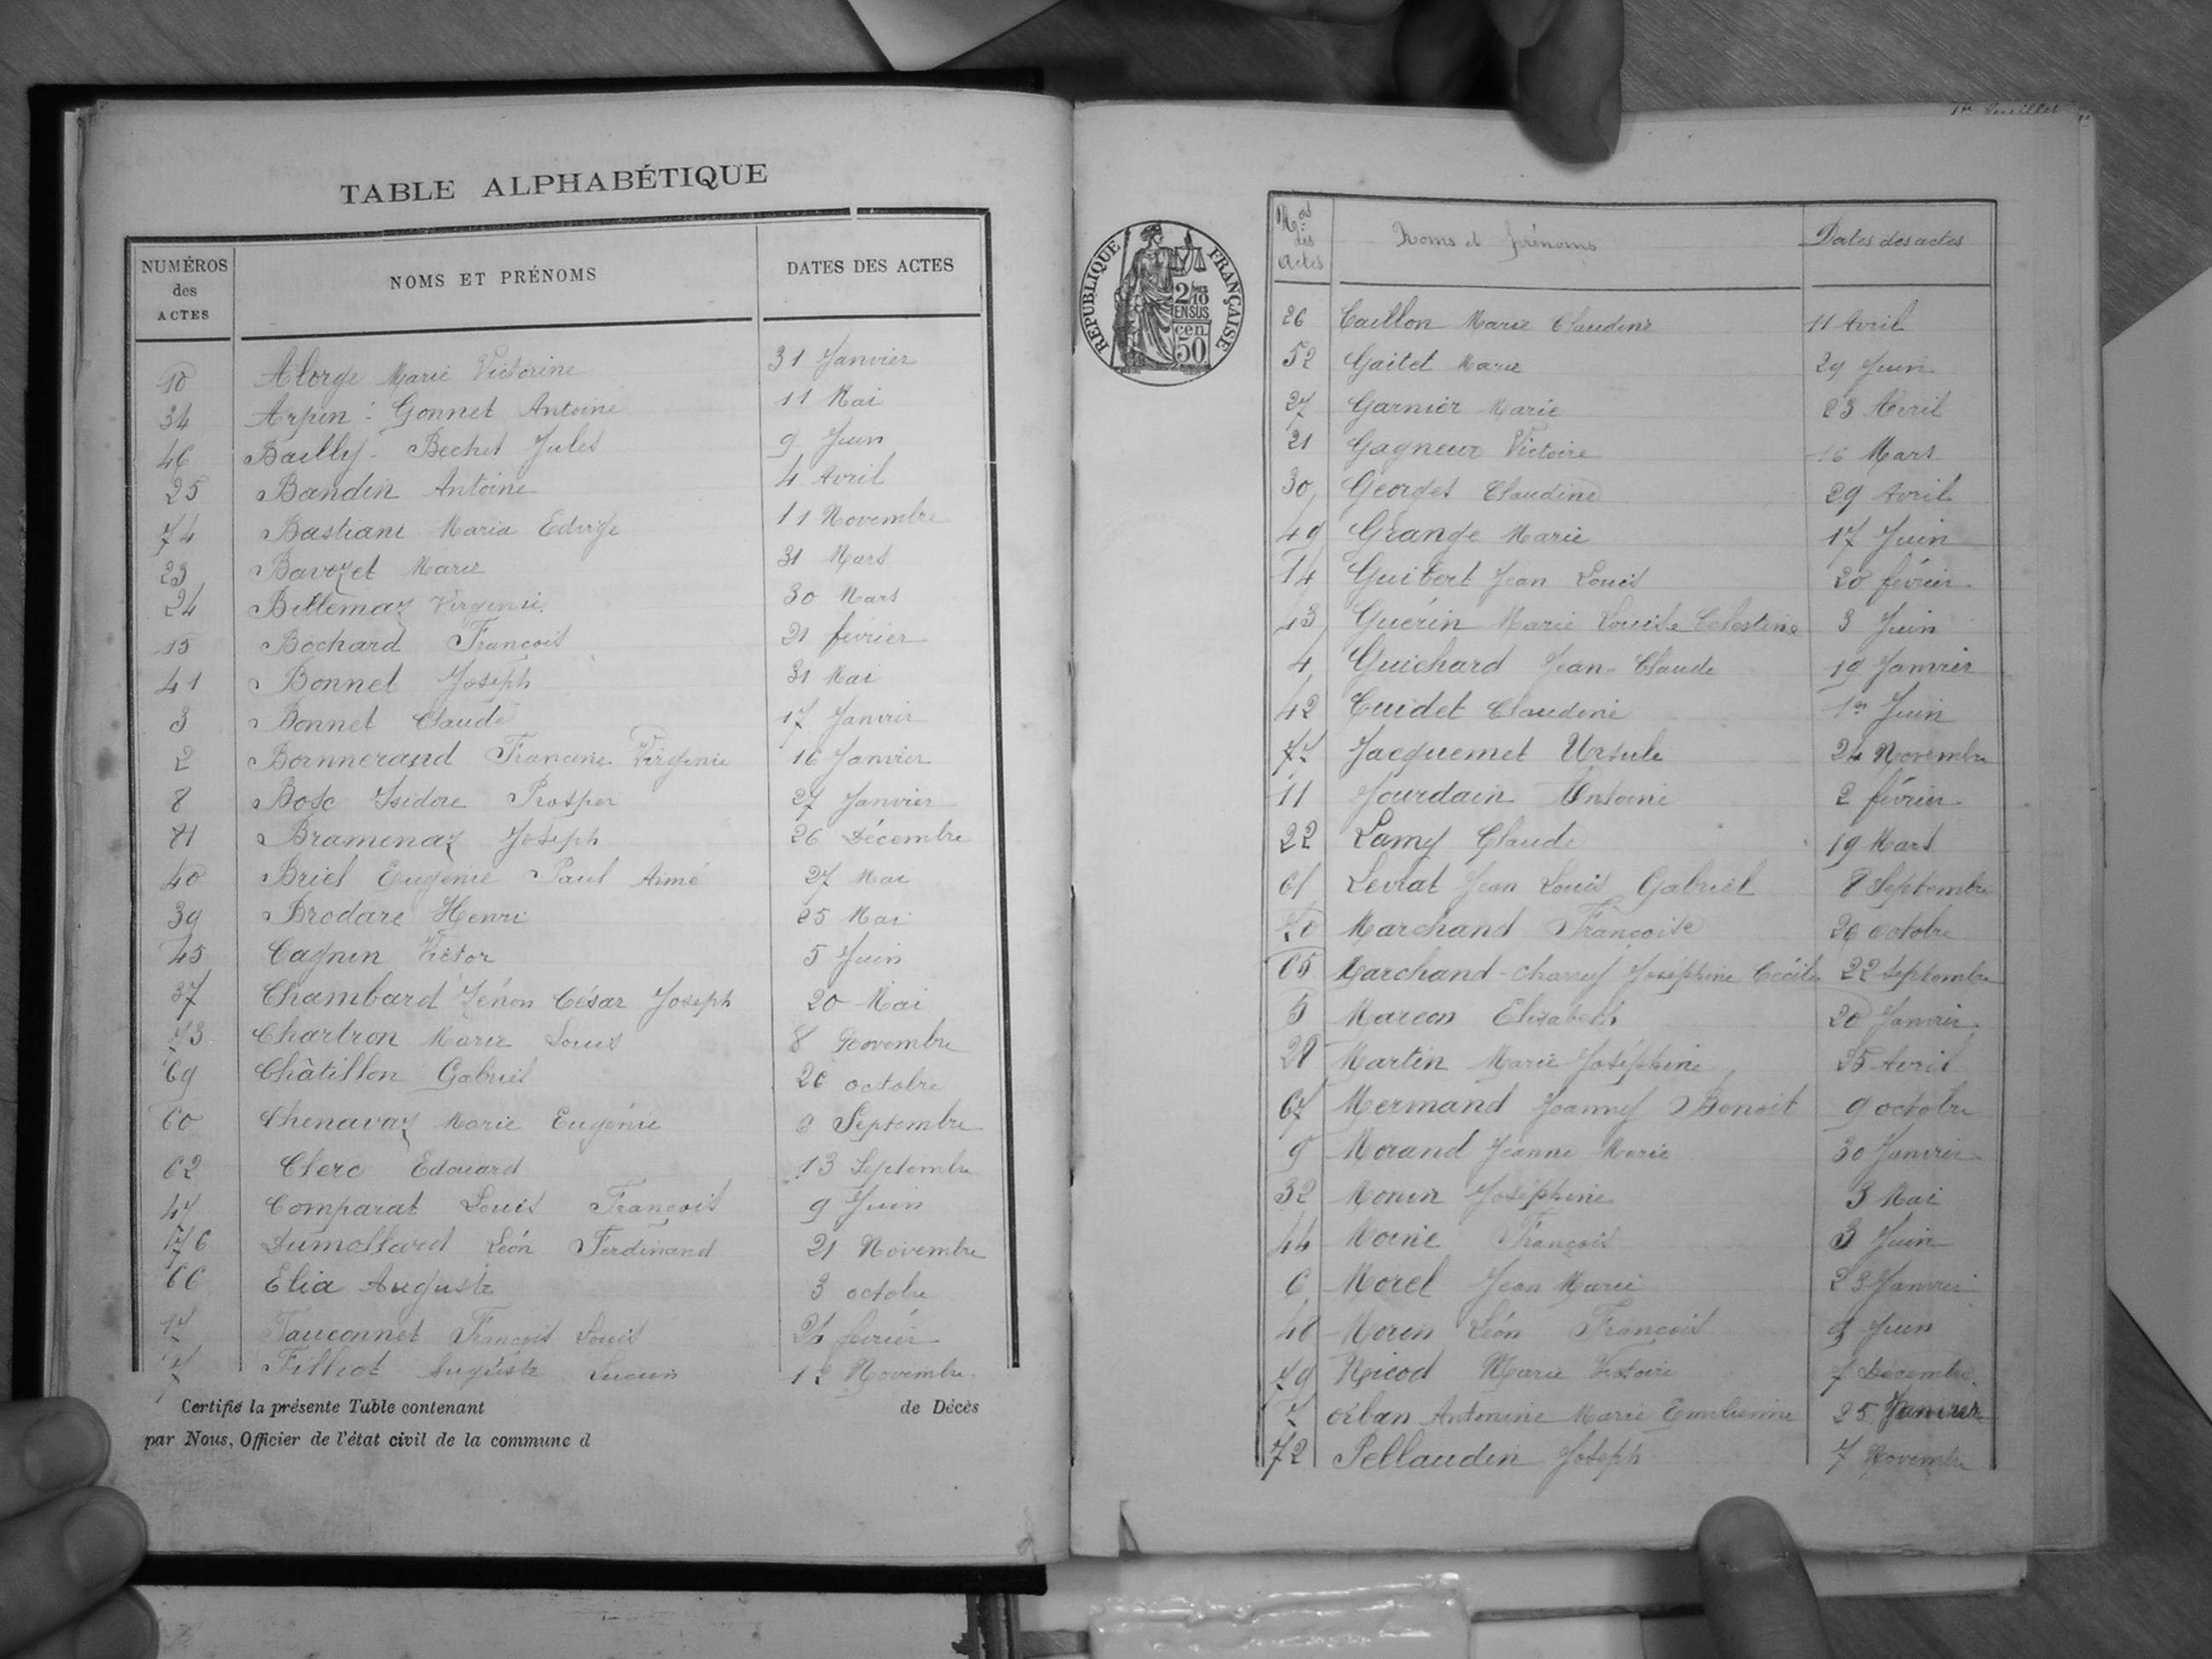 TABLE ALPHABÉTIQUE
NUMÉROS des ACTES NOMS ET PRÉNOMS DATES DES ACTES
10 Alorge Marie Victorine 31 Janvier
34 Arpin: Gonnet Antoine 11 Mai
46 Bailly-Bechet Jules 9 Juin
25 Bandin Antoine 4 Avril
74 Bastiani Maria Edvige 11 Novembre
23 Bavozet Marie 31 Mars
24 Billemaz Virginie 30 Mars
15 Bochard François 21 février
41 Bonnet Joseph 31 Mai
3 Bonnet Claude 17 Janvier
2 Bornnerand Francine Virginie 16 Janvier
8 Bosc Isidore Prosper 27 Janvier
81 Bramenaz Joseph 26 Décembre
40 Briel Eugénie Paul Aimé 27 Mai
39 Brodare Henri 25 Mai
45 Cagnin Victor 5 Juin
37 Chambard Zénon César Joseph 20 Mai
73 Chartron Marie Louis 8 Novembre
69 Châtillon Gabriel 26 octobre
60 Chenavaz Marie Eugénie 6 Septembre
62 Clerc Edouard 13 Septembre
47 Comparat Louis François 9 Juin
76 Dumollard Léon Ferdinand 21 Novembre
66 Elia Auguste 3 octobre
17 Fauconnet François Louis 24 février
Filliot Auguste Lucien 12 Novembre
Certifié la présente Table contenant de Décès
par Nous, Officier de l'état civil de la commune d
1er feuillet
RÉPUBLIQUE FRANÇAISE
2/10 EN SUS
50 cen
Nos des Actes Noms et prénoms Dates des actes
26 Caillon Marie Claudine 11 Avril
52 Gaitet Marie 29 Juin
27 Garnier Marie 23 Avril
21 Gagneur Victoire 16 Mars
30 Georges Claudine 29 Avril
49 Grange Marie 17 Juin
14 Guibert Jean Louis 20 février
43 Guérin Marie Louise Celestine 3 Juin
4 Guichard Jean-Claude 19 Janvier
42 Guidet Claudine 1er Juin
77 Jacquemet Ursule 24 Novembre
11 Jourdain Antoine 2 février
22 Lamy Claude 19 Mars
61 Levrat Jean Louis Gabriel 8 Septembre
70 Marchand Françoise 26 octobre
65 Marchand-charruy Joséphine Cécile 22 Septembre
5 Marcon Elisabeth 20 Janvier
28 Martin Marie Joséphine 25 Avril
67 Mermand Joanny Benoit 9 octobre
9 Morand Jeanne Marie 30 Janvier
32 Monin Joséphine 3 Mai
44 Moine François 3 Juin
6 Morel Jean Marie 23 Janvier
48 Morin Léon François 9 Juin
79 Nicod Marie Victoire 7 Décembre
7 orban Antonine Marie Emilienne 25 Janvier
72 Pellaudin Joseph 7 Novembre